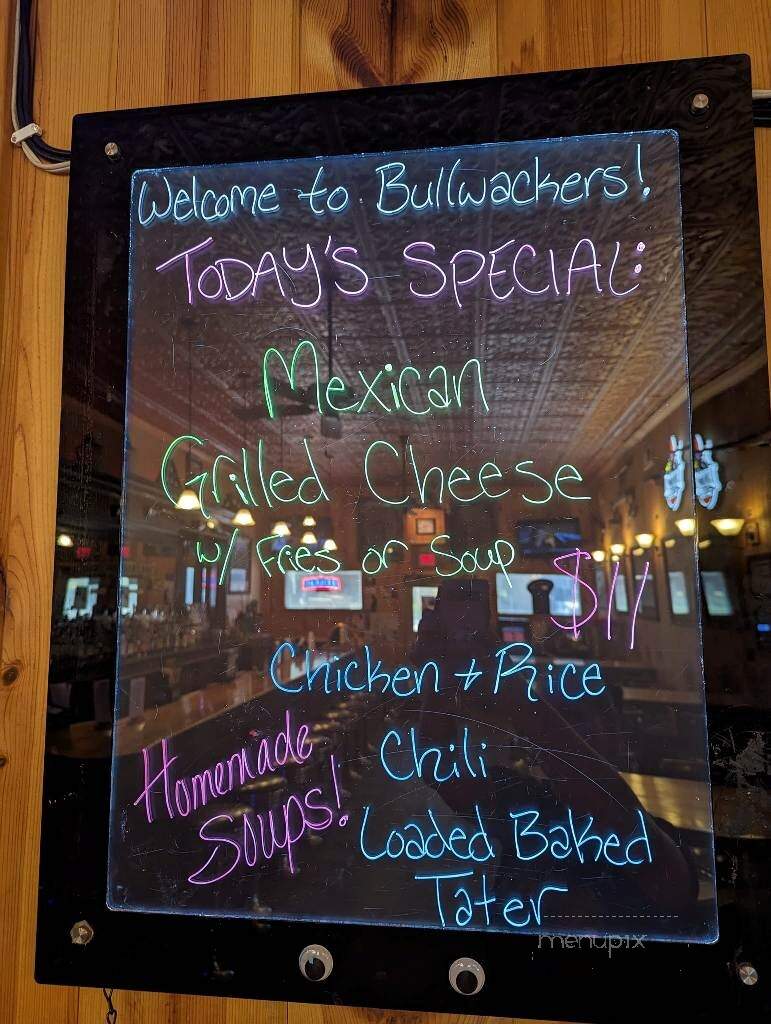 Welcome to Bullwackers!
TODAY'S SPECIAL:
Mexican
Grilled Cheese
w/ Fries or Soup
$11
Chicken + Rice
Homemade
Soups!
Chili
Loaded Baked
Tater
menupix